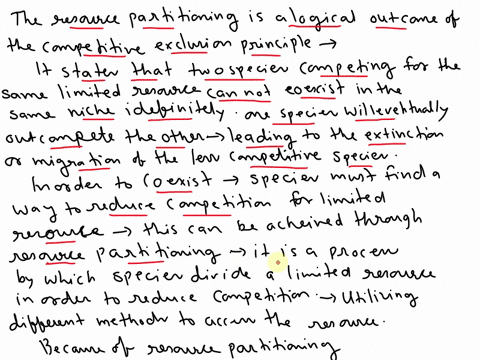 The resource partitioning is a logical outcome of
the competitive exclusion principle →
It states that two species competing for the
same limited resource can not coexist in the
same niche idefinitely. one species will eventually
outcompete the other → leading to the extinction
or migration of the less competitive species.
In order to coexist → species must find a
way to reduce competition for limited
resource → this can be acheived through
resource partitioning → it is a process
by which species divide a limited resource
in order to reduce competition. → Utilizing
different methods to access the resource.
Because of resource partitioning